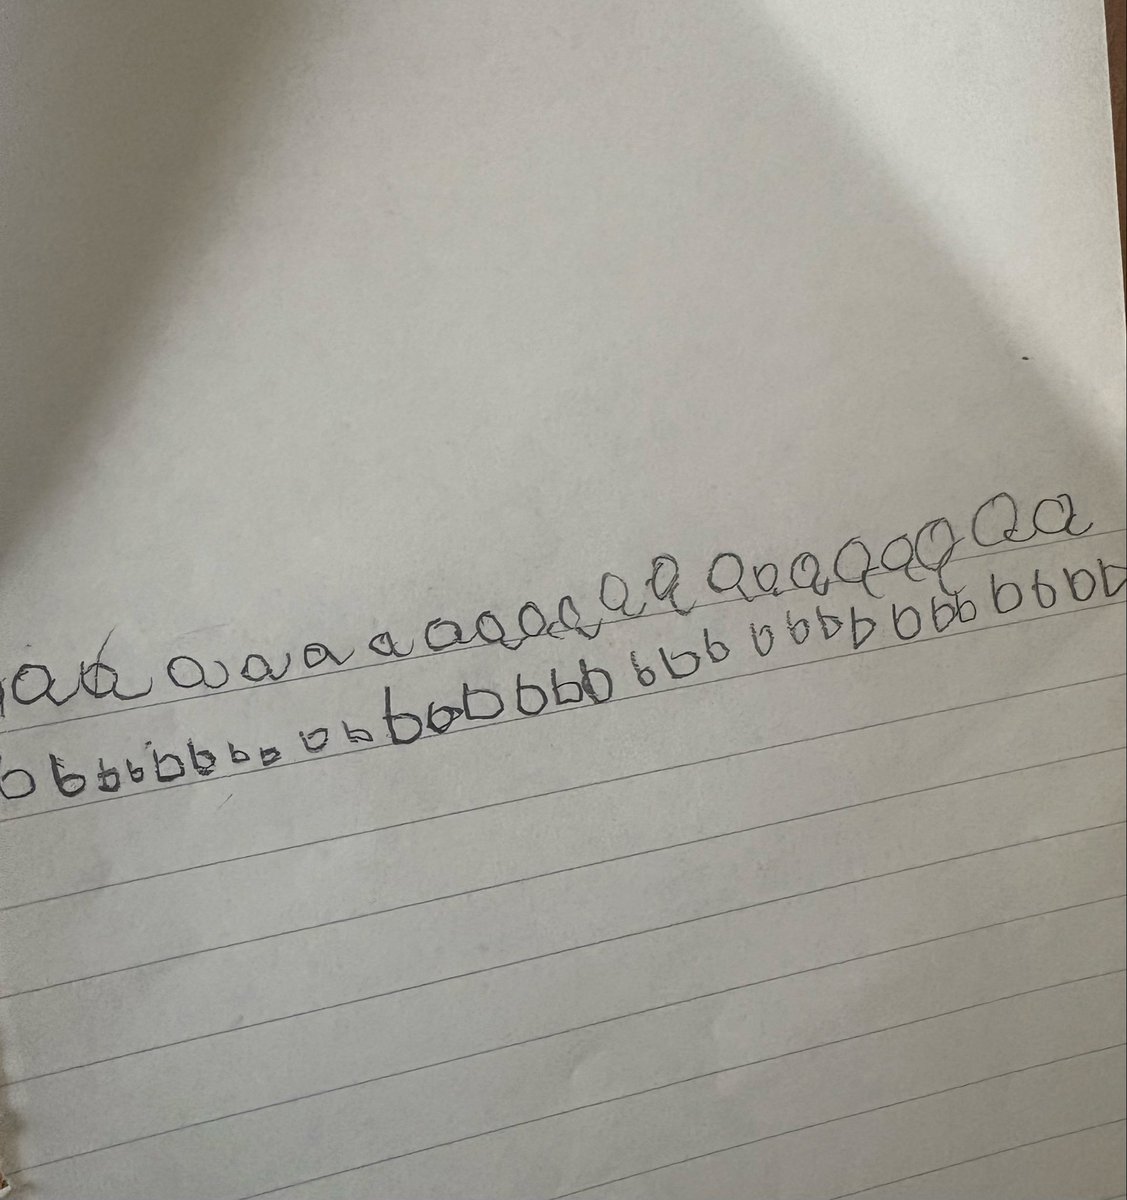 a a a a a a a a a a a a a a a a a a a a a a
b b b b b b b b b b b b b b b b b b b b b b b b b b b b b b b b b b